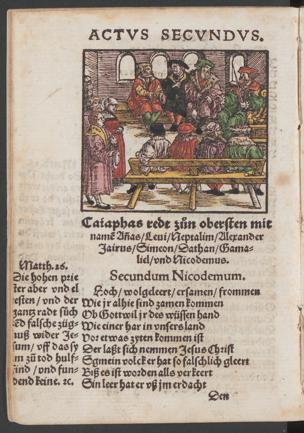 ACTVS SECVNDVS.
Caiaphas redt zůn obersten mit
namē Añas/Leui/Neptalim/Alexander
Jairus/Simeon/Dathan/Gama-
liel/vnd Nicodemus.
Matth. 26.
Die hohen prie
ster aber vnd el
testen/vnd der
gantz radt sůch
ed falsche züg-
nuß wider Je-
sum/vff das sy
jn zů tod hulf-
find/vnd fun-
dend keine. ꝛc.
Secundum Nicodemum.
Hoch/wolgeleert/ersamen/frommen
Wie jr alhie sind zamen kommen
Ob Gott wil jr des wüssen hand
Wie einer har in vnsers land
Vor etwas zyten kommen ist
Der laßt sich nemmen Jesus Christ
Sgmein volck er hat so falschlich gleert
Biß es ist worden alls verkeert
Sin leer hat er vß jm erdacht
Den